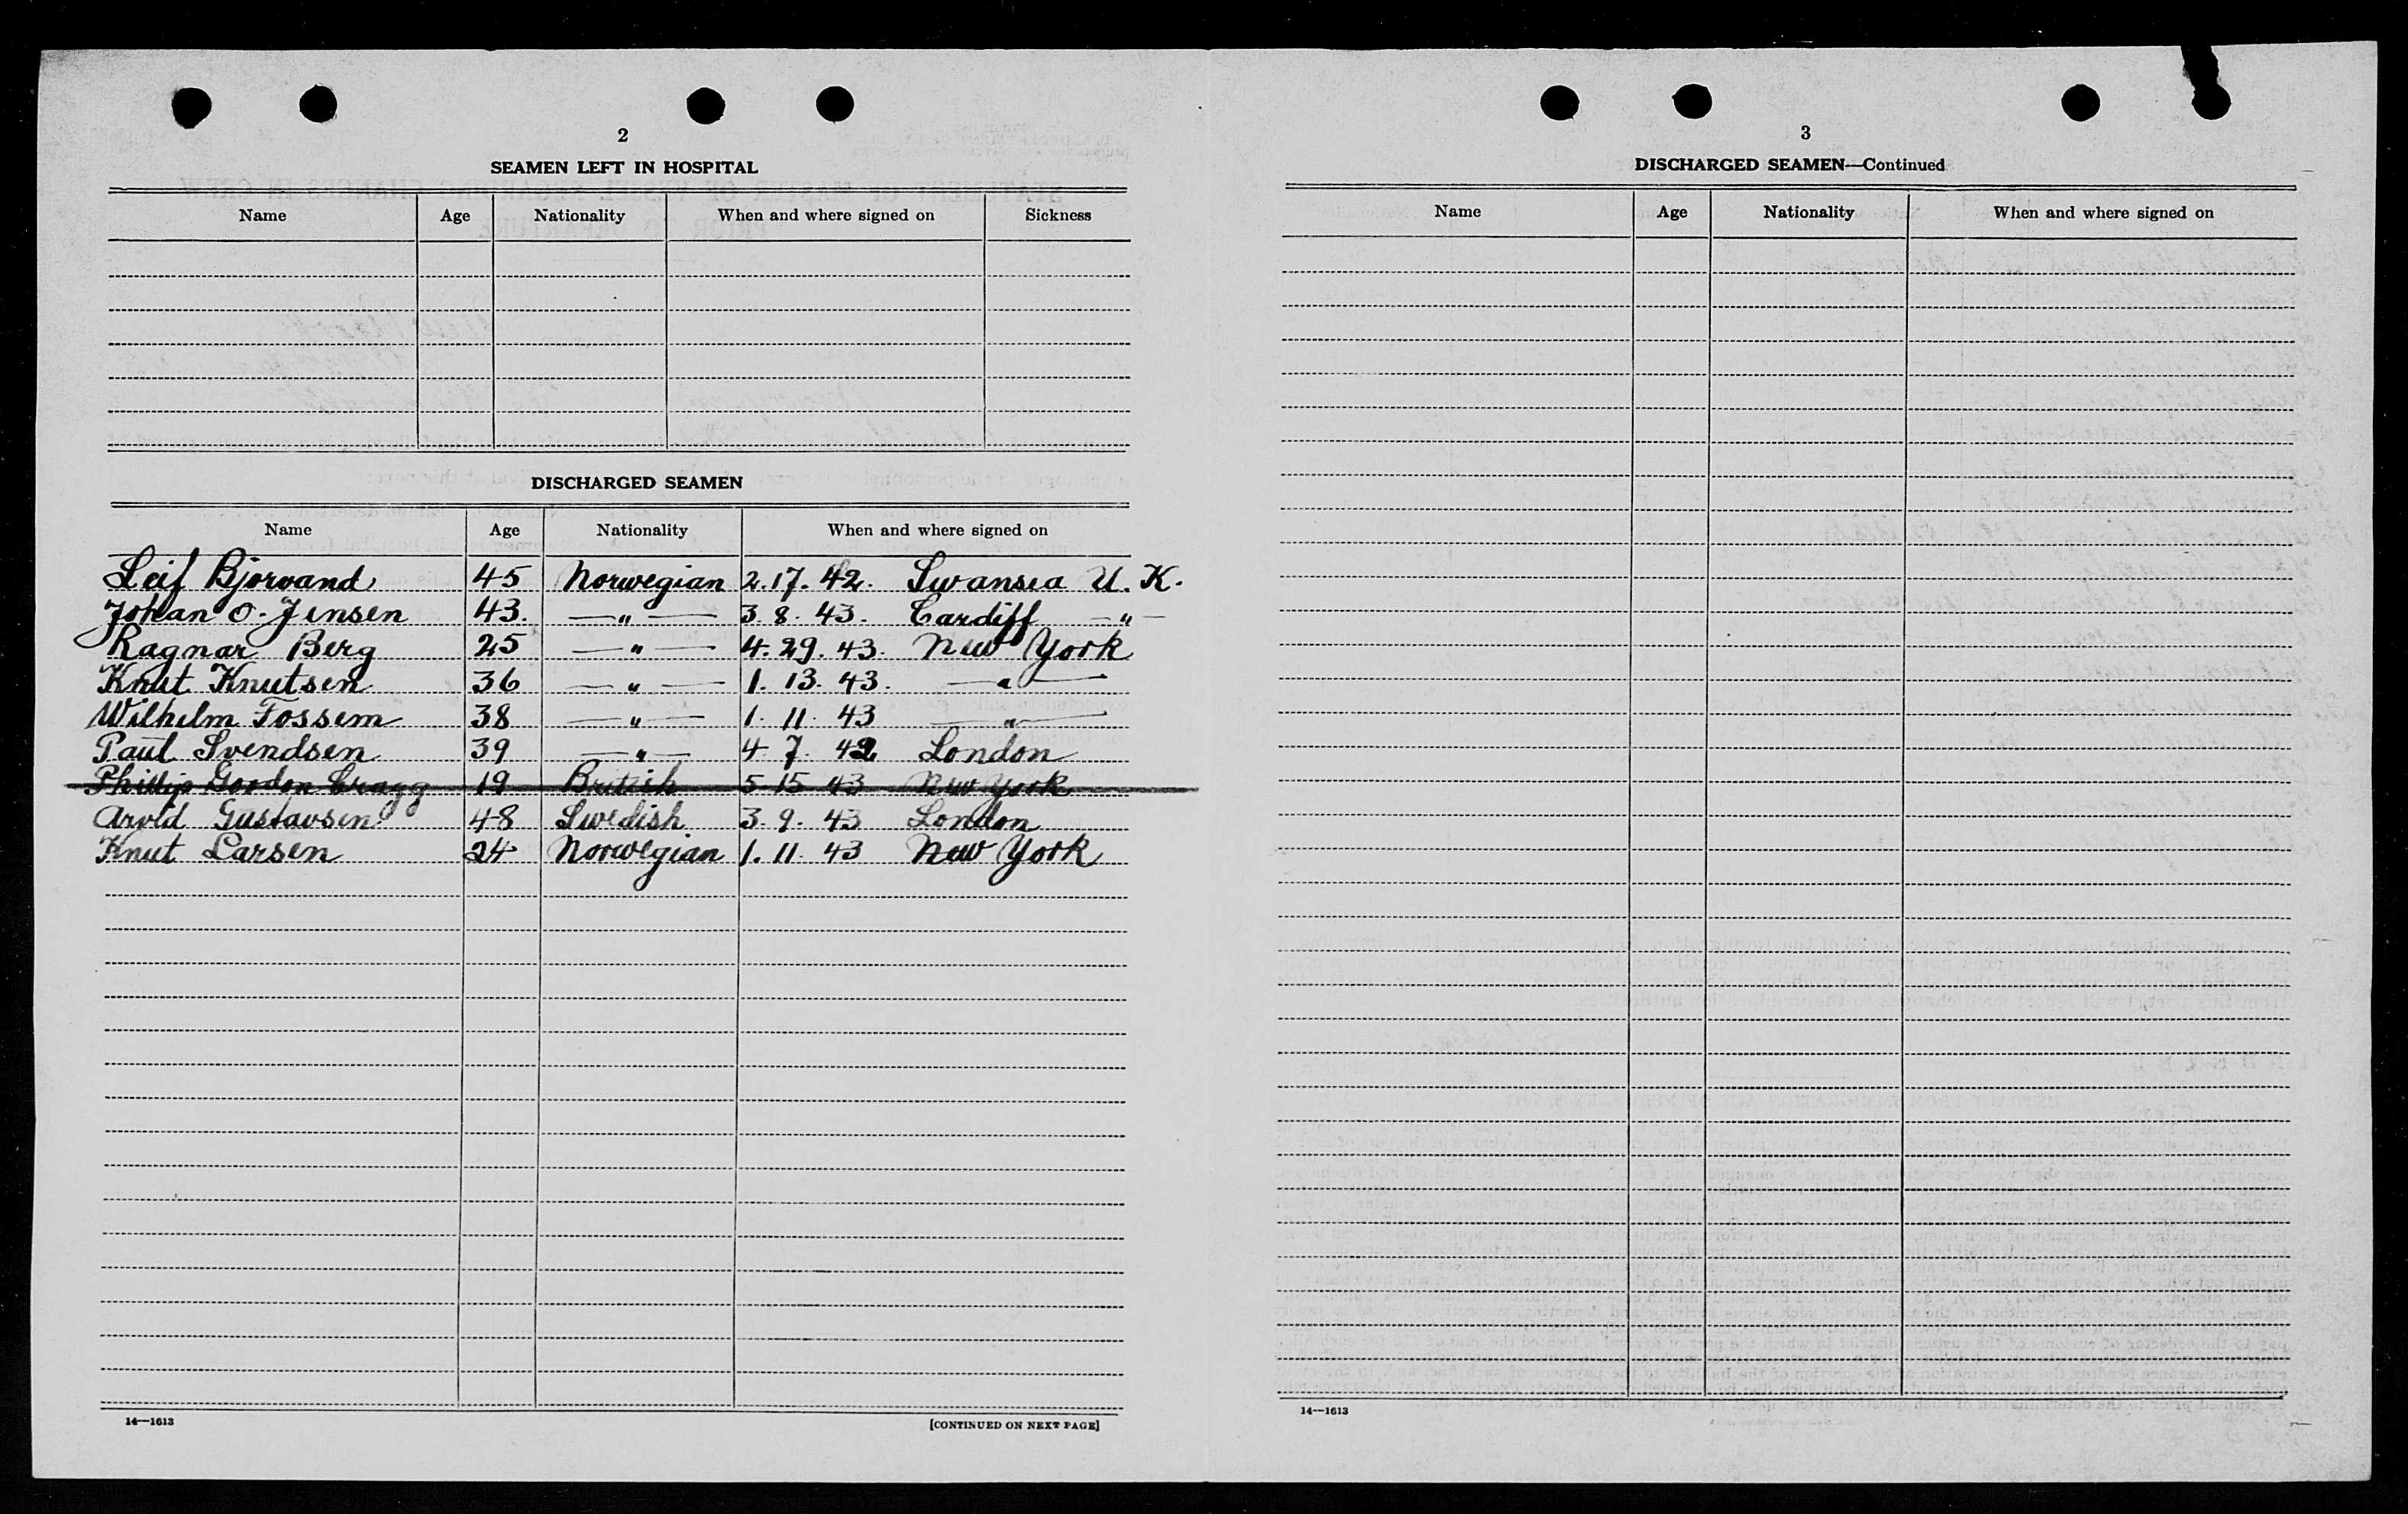 2
SEAMEN LEFT IN HOSPITAL
Name Age Nationality When and where signed on Sickness
DISCHARGED SEAMEN
Name Age Nationality When and where signed on
Leif Bjorvand 45 Norwegian 2.17.42. Swansea U.K.
Johan O. Jensen 43. —"— 3.8.43. Cardiff —"—
Ragnar Berg 25 —"— 4.29.43. New York
Knut Knutsen 36 —"— 1.13.43. —"—
Wilhelm Fossem 38 —"— 1.11.43 —"—
Paul Svendsen 39 —"— 4.7.42 London
Phillip Gordon Cragg 19 British 5.15.43 New York
Arvid Gustavsen 48 Swedish 3.9.43 London
Knut Larsen 24 Norwegian 1.11.43 New York
14—1613 [CONTINUED ON NEXT PAGE]
3
DISCHARGED SEAMEN—Continued
Name Age Nationality When and where signed on
14—1613